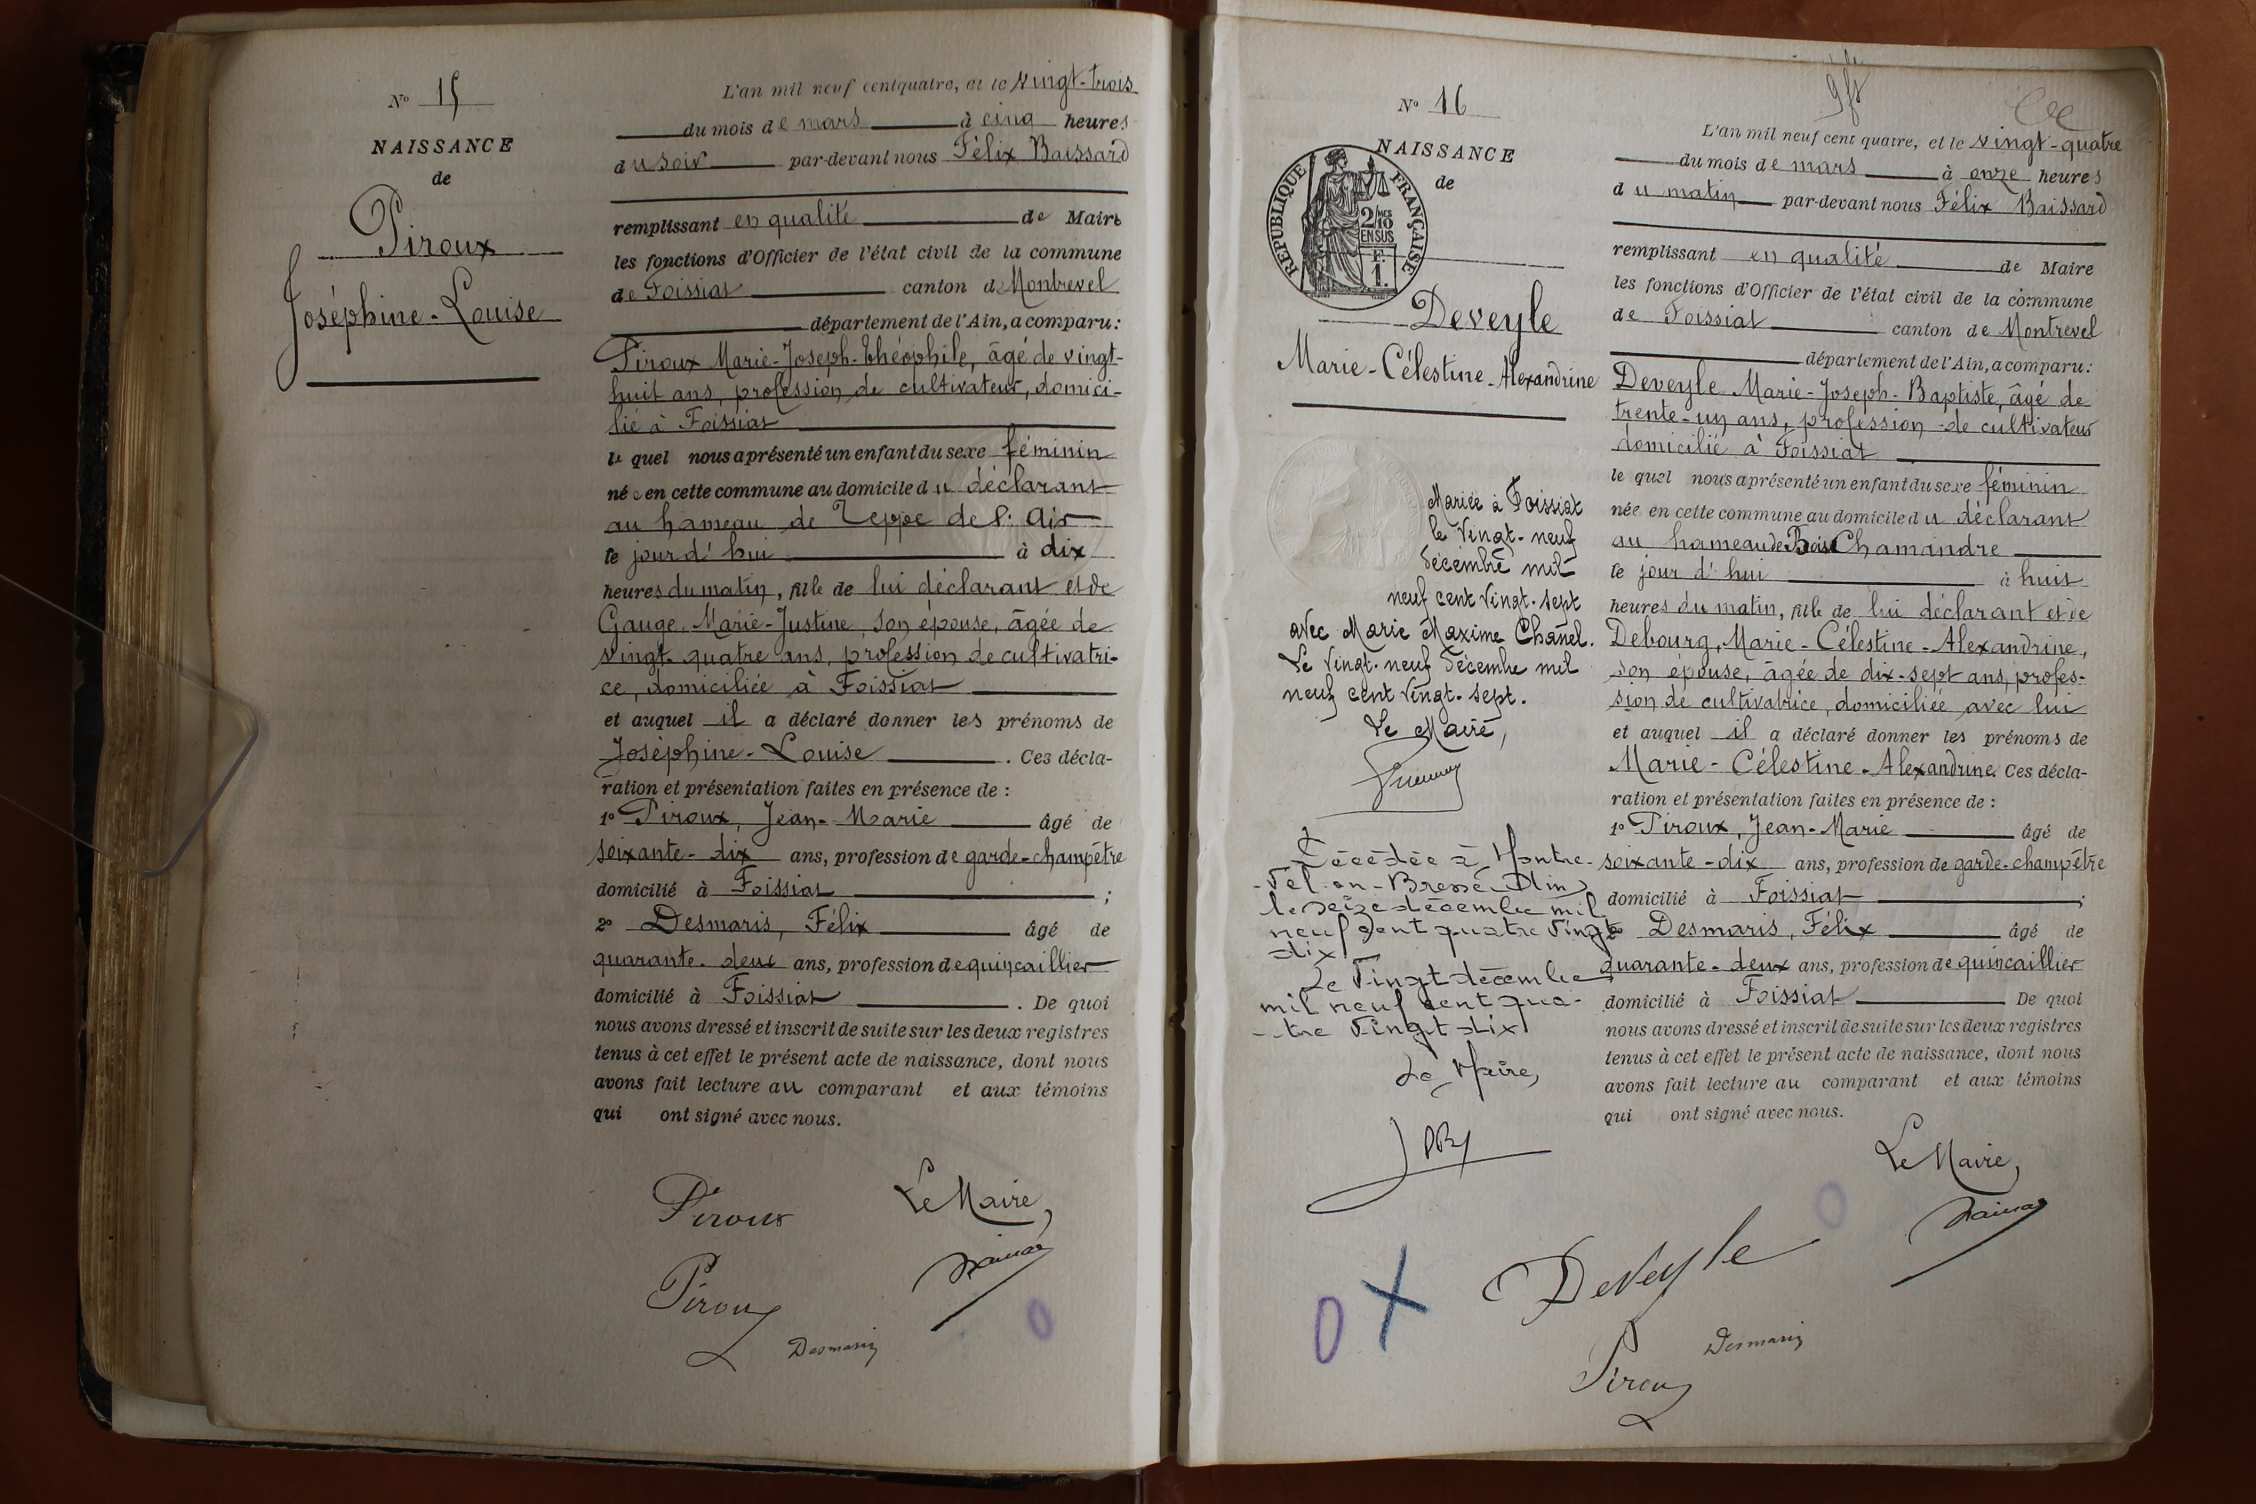 N° 15
NAISSANCE
de
Piroux
Joséphine-Louise
L'an mil neuf cent quatre, et le vingt-trois
du mois de mars à cinq heures
du soir par-devant nous Félix Baissard
remplissant en qualité de Maire
les fonctions d'Officier de l'état civil de la commune
de Foissiat canton de Montrevel
département de l'Ain, a comparu:
Piroux Marie-Joseph-Théophile, âgé de vingt-
huit ans, profession de cultivateur, domici-
lié à Foissiat
le quel nous a présenté un enfant du sexe féminin
née en cette commune au domicile du déclarant
au hameau de Teppe de l'Air
le jour d'hui à dix
heures du matin, fille de lui déclarant et de
Gauge, Marie-Justine, son épouse, âgée de
vingt-quatre ans, profession de cultivatri-
ce, domiciliée à Foissiat
et auquel il a déclaré donner les prénoms de
Joséphine-Louise. Ces décla-
ration et présentation faites en présence de :
1° Piroux, Jean-Marie âgé de
soixante-dix ans, profession de garde-champêtre
domicilié à Foissiat ;
2° Desmaris, Félix âgé de
quarante-deux ans, profession de quincaillier
domicilié à Foissiat. De quoi
nous avons dressé et inscrit de suite sur les deux registres
tenus à cet effet le présent acte de naissance, dont nous
avons fait lecture au comparant et aux témoins
qui ont signé avec nous.
Piroux Le Maire,
Piroux
Desmaris
N° 16
NAISSANCE
de
REPUBLIQUE FRANÇAISE
2/10 MES
EN SUS
F.
1.
Deveyle
Marie-Célestine-Alexandrine
Mariée à Foissiat
le vingt-neuf
décembre mil
neuf cent vingt-sept
avec Marie Maxime Chanel.
Le vingt-neuf décembre mil
neuf cent vingt-sept.
Le Maire,
Décédée à Montre-
-vel-en-Bresse Ain
le seize décembre mil
neuf cent quatre vingt
dix
Le vingt décembre
mil neuf cent qua-
-tre vingt dix
Le Maire,
L'an mil neuf cent quatre, et le vingt-quatre
du mois de mars à onze heures
du matin par-devant nous Félix Baissard
remplissant en qualité de Maire
les fonctions d'Officier de l'état civil de la commune
de Foissiat canton de Montrevel
département de l'Ain, a comparu:
Deveyle Marie-Joseph-Baptiste, âgé de
trente-un ans, profession de cultivateur
domicilié à Foissiat
le quel nous a présenté un enfant du sexe féminin
née en cette commune au domicile du déclarant
au hameau de Bois Chamandre
le jour d'hui à huit
heures du matin, fille de lui déclarant et de
Debourg, Marie-Célestine-Alexandrine,
son épouse, âgée de dix-sept ans, profes-
sion de cultivatrice, domiciliée avec lui
et auquel il a déclaré donner les prénoms de
Marie-Célestine-Alexandrine. Ces décla-
ration et présentation faites en présence de :
1° Piroux, Jean-Marie âgé de
soixante-dix ans, profession de garde-champêtre
domicilié à Foissiat ;
2° Desmaris, Félix âgé de
quarante-deux ans, profession de quincaillier
domicilié à Foissiat De quoi
nous avons dressé et inscrit de suite sur les deux registres
tenus à cet effet le présent acte de naissance, dont nous
avons fait lecture au comparant et aux témoins
qui ont signé avec nous.
Le Maire,
Deveyle
Desmaris
Piroux